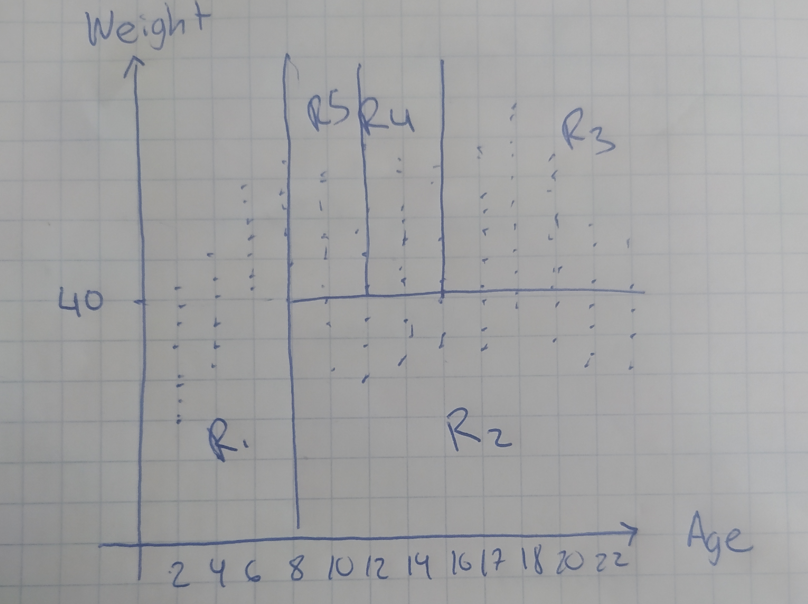 Weight
R5 R4 R3
40
R1 R2
2 4 6 8 10 12 14 16 17 18 20 22 Age